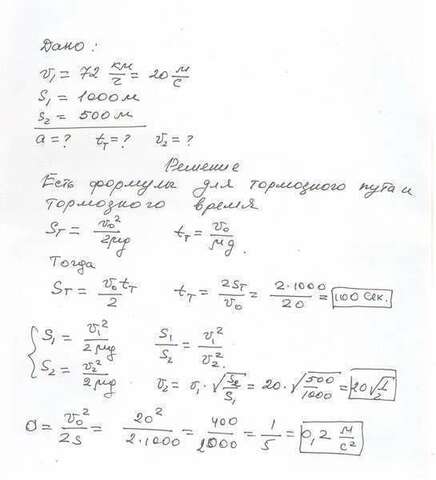 Дано:
v₁ = 72 км/ч = 20 м/с
S₁ = 1000 м
S₂ = 500 м
a = ? tт = ? v₂ = ?
Решение
Есть формулы для тормозного пута и
тормозного время
Sт = v₀²/2μg tт = v₀/μg.
Тогда
Sт = v₀tт/2 tт = 2Sт/v₀ = 2·1000/20 = 100 сек.
{ S₁ = v₁²/2μg S₁/S₂ = v₁²/v₂².
S₂ = v₂²/2μg v₂ = v₁·√(S₂/S₁) = 20·√(500/1000) = 20√(1/2)
a = v₀²/2s = 20²/2·1000 = 400/2000 = 1/5 = 0,2 м/с²